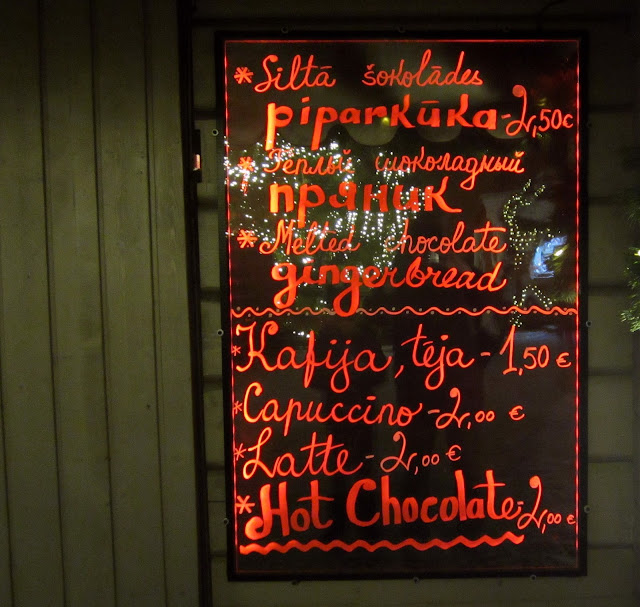 * Siltā šokolādes
piparkūka-2,50€
* Тёплый шоколадный
пряник
* Melted chocolate
gingerbread
* Kafija, tēja - 1,50 €
* Capuccino - 2,00 €
* Latte - 2,00 €
* Hot Chocolate - 2,00 €